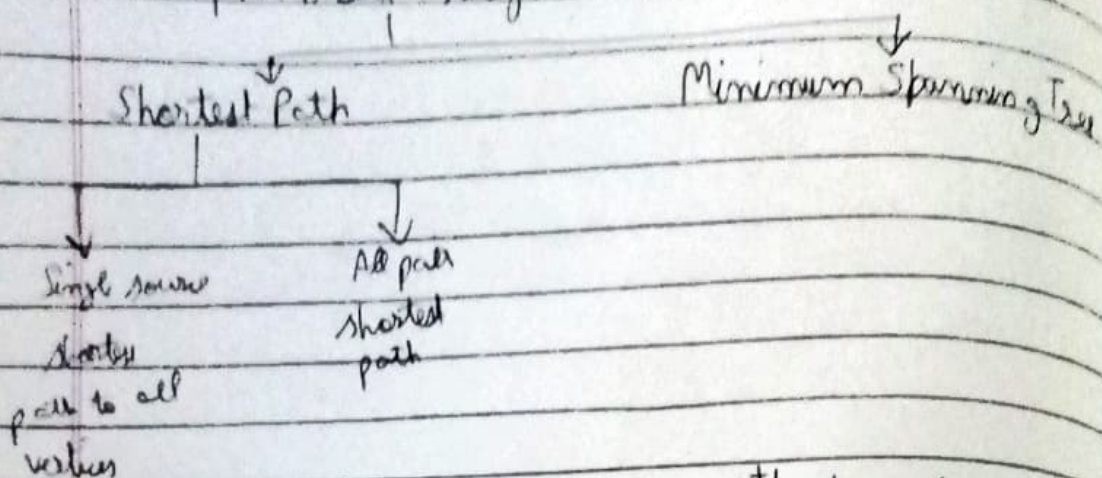 Shortest Path
Minimum Spanning Tree
Single source
shortest
path to all
vertices
All pair
shortest
path